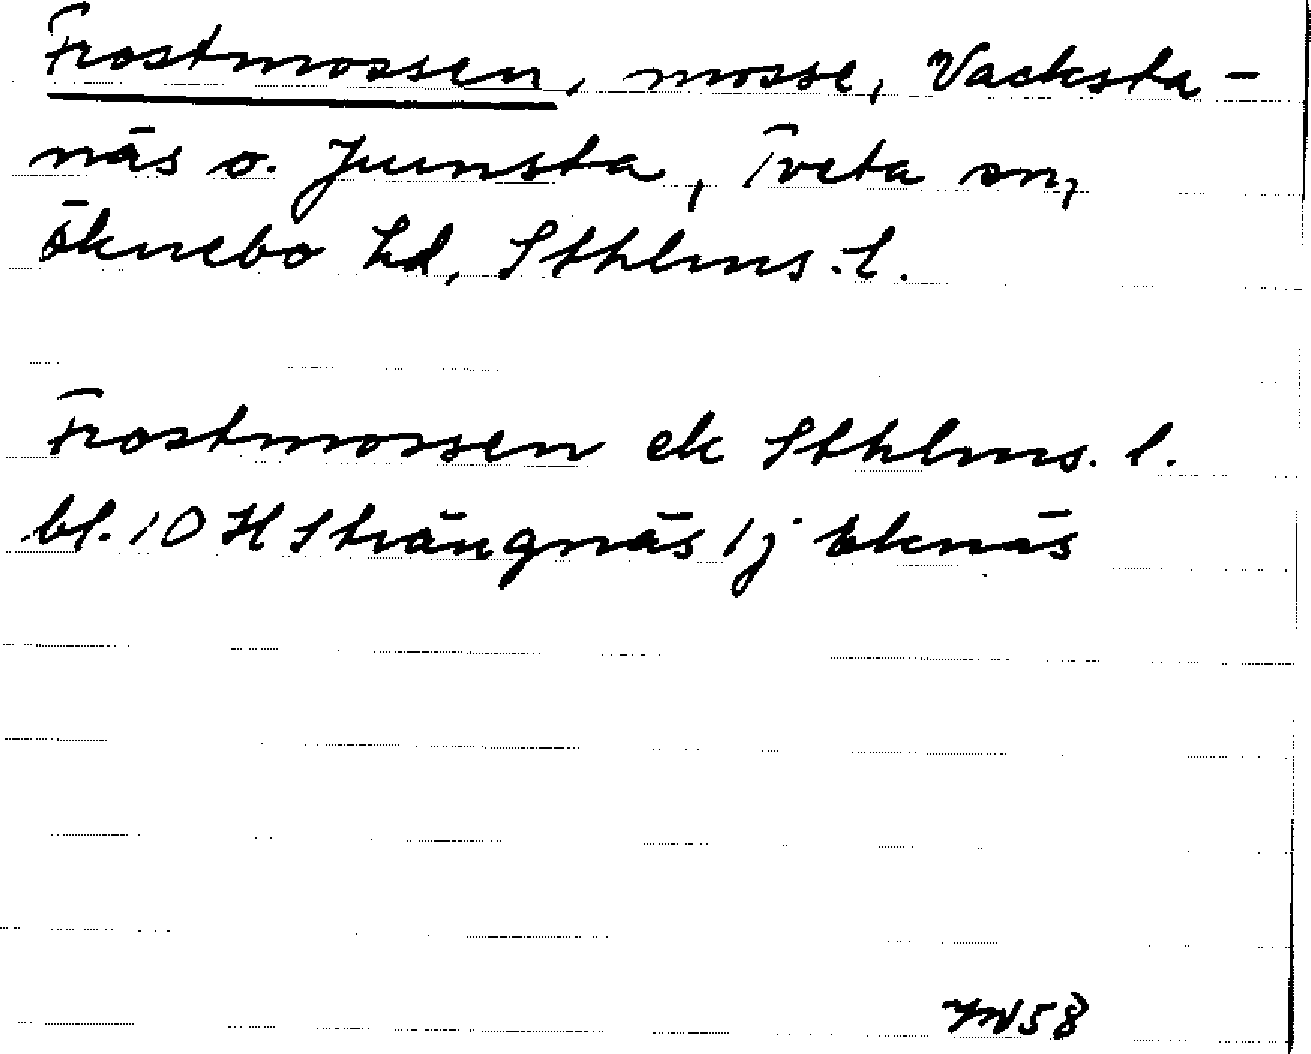 Frostmossen, mosse, Vacksta-
näs o. Jumsta, Tveta sn,
Öknebo hd, Sthlms. l.
Frostmossen ek Sthlms. l.
bl. 10 H Strängnäs 1j Eknäs